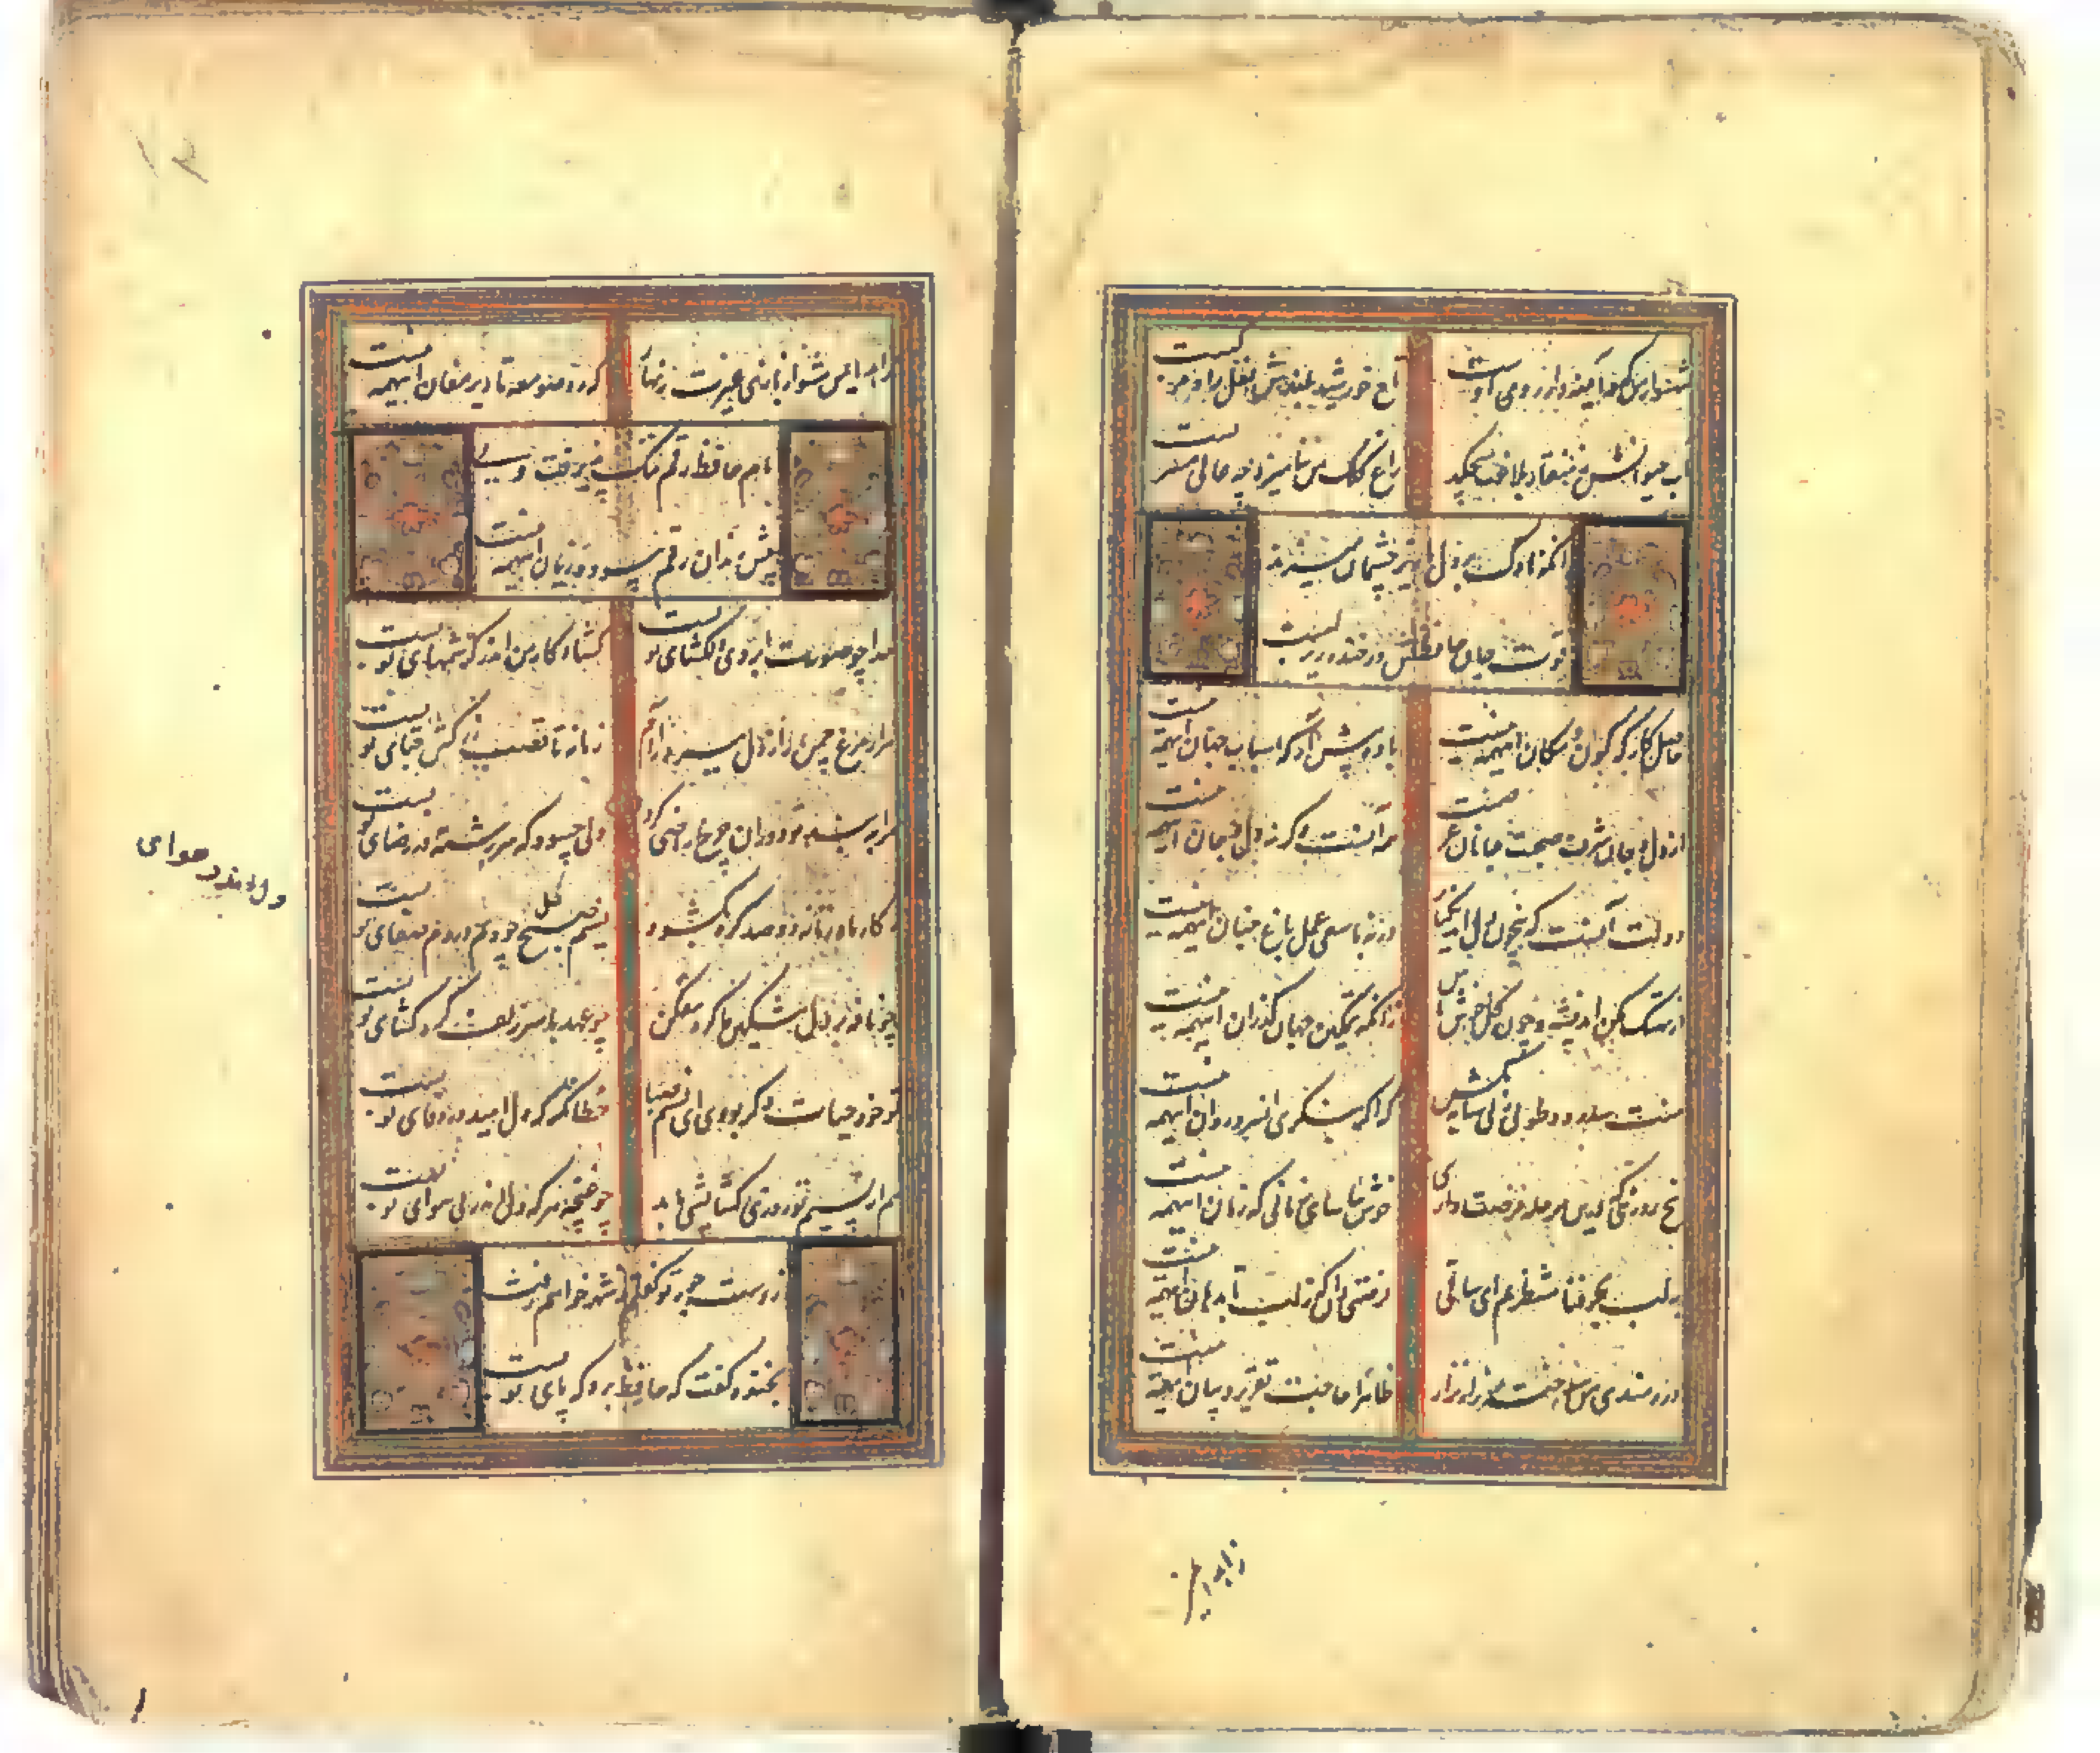 شهسوار من که مه آینه‌دار روی اوست
تاج خورشید بلندش نعل مرکب است
آب حیوانش ز منقار بلاغت می‌چکد
زاغ کلک من بنامیزد چه عالی مشربست
آنکه ناوک بر دل از زیر چشمان میزند
قوت جان حافظش در خنده زیر لبست
حاصل کارگه کون و مکان اینهمه نیست
باده پیش آر که اسباب جهان اینهمه نیست
از دل و جان شرف صحبت جانان غرض
همه آنست وگرنه دل و جان اینهمه نیست
دولت آنست که بی خون دل آید بکنار
ورنه با سعی عمل باغ جنان اینهمه نیست
از تهتک مکن اندیشه و چون گل خوش باش
زانکه تمکین جهان گذران اینهمه نیست
منت سدره و طوبی ز پی سایه مکش
که اگر بنگری ای سرو روان اینهمه نیست
پنج روزی که درین مرحله فرصت داری
خوش بیاسای زمانی که زمان اینهمه نیست
بر لب بحر فنا منتظریم ای ساقی
فرصتی دان که ز لب تا بدهان اینهمه نیست
دردمندی من سوخته زار نزار
ظاهرا حاجت تقریر و بیان اینهمه نیست
زاهد ایمن
زاهد ایمن مشو از بازی غیرت زنهار
که ره صومعه تا دیر مغان اینهمه نیست
نام حافظ رقم نیک پذیرفت ولی
پیش رندان رقم سود و زیان اینهمه نیست
خدا چو صورت ابروی دلگشای تو بست
گشاد کار من اندر کرشمهای تو بست
مرا و مرغ چمن را ز دل ببرد آرام
زمانه تا قصب نرگس قبای تو بست
مرا به بند تو دوران چرخ راضی کرد
ولی چه سود که سررشته در رضای تو بست
ز کار ما و دل غنچه صد گره بگشود
نسیم صبح چو دل در ره هوای تو بست
گل
دل اندر هوای
چو نافه بر دل مسکین ما گره مفکن
چو عهد با سر زلف گره گشای تو بست
تو خود حیات دگر بودی ای نسیم صبا
خطا نگر که دل امید در وفای تو بست
هم از نسیم تو روزی گشایشی یابد
چو غنچه هر که دل اندر پی هوای تو بست
ز دست جور تو گفتم ز شهر خواهم رفت
بخنده گفت که حافظ برو که پای تو بست